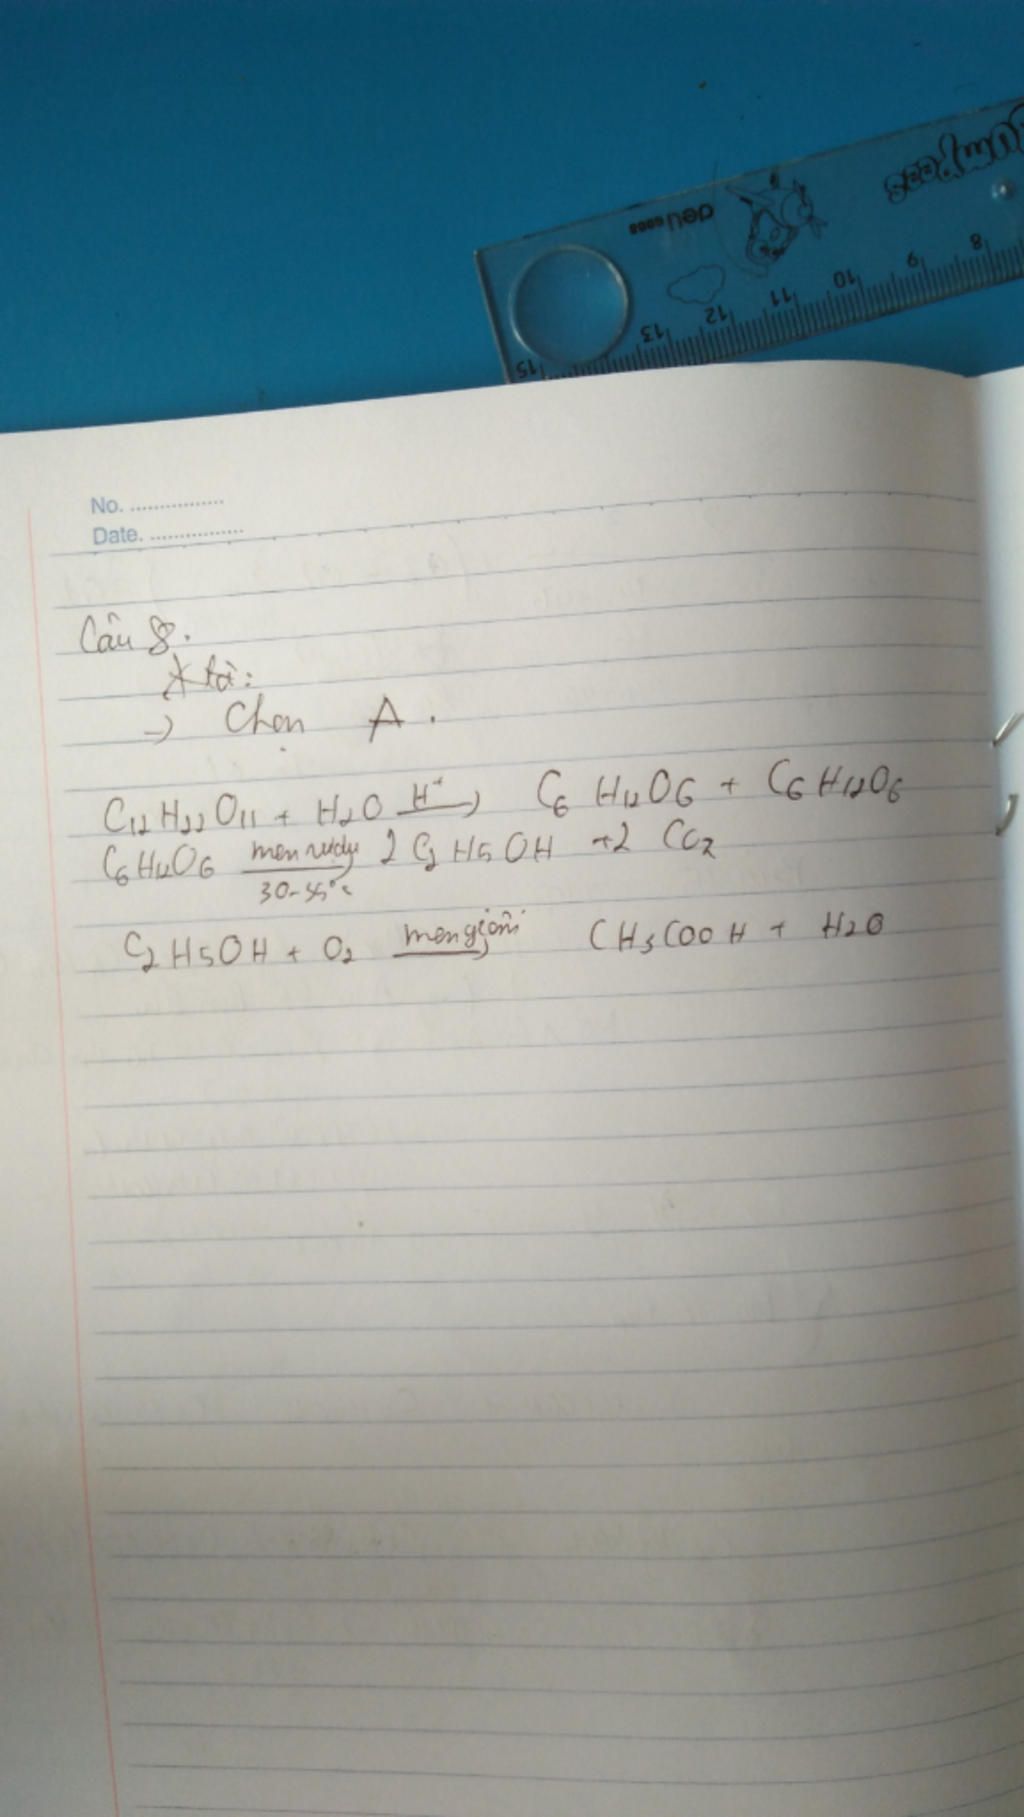 deli
15 13 12 11 10 9 8
No. ................
Date. ................
Câu 8.
→ Chọn A.
C12H22O11 + H2O H+→ C6H12O6 + C6H12O6
C6H12O6 men rượu 2 C2H5OH + 2 CO2
C2H5OH + O2 men giấm CH3COOH + H2O